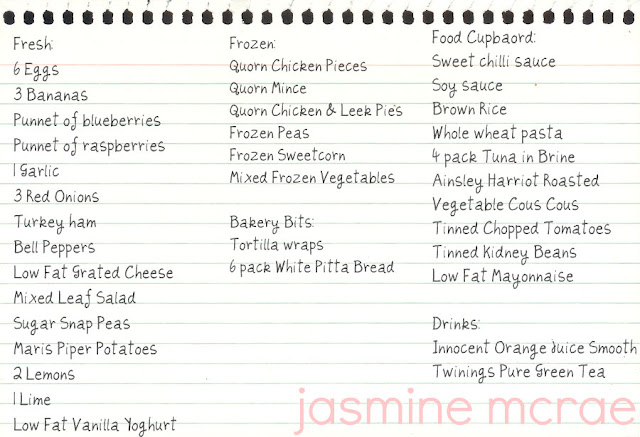 Fresh:
6 Eggs
3 Bananas
Punnet of blueberries
Punnet of raspberries
1 Garlic
3 Red Onions
Turkey ham
Bell Peppers
Low Fat Grated Cheese
Mixed Leaf Salad
Sugar Snap Peas
Maris Piper Potatoes
2 Lemons
1 Lime
Low Fat Vanilla Yoghurt
Frozen:
Quorn Chicken Pieces
Quorn Mince
Quorn Chicken & Leek Pie's
Frozen Peas
Frozen Sweetcorn
Mixed Frozen Vegetables
Bakery Bits:
Tortilla wraps
6 pack White Pitta Bread
Food Cupbaord:
Sweet chilli sauce
Soy sauce
Brown Rice
Whole wheat pasta
4 pack Tuna in Brine
Ainsley Harriot Roasted
Vegetable Cous Cous
Tinned Chopped Tomatoes
Tinned Kidney Beans
Low Fat Mayonnaise
Drinks:
Innocent Orange Juice Smooth
Twinings Pure Green Tea
jasmine mcrae